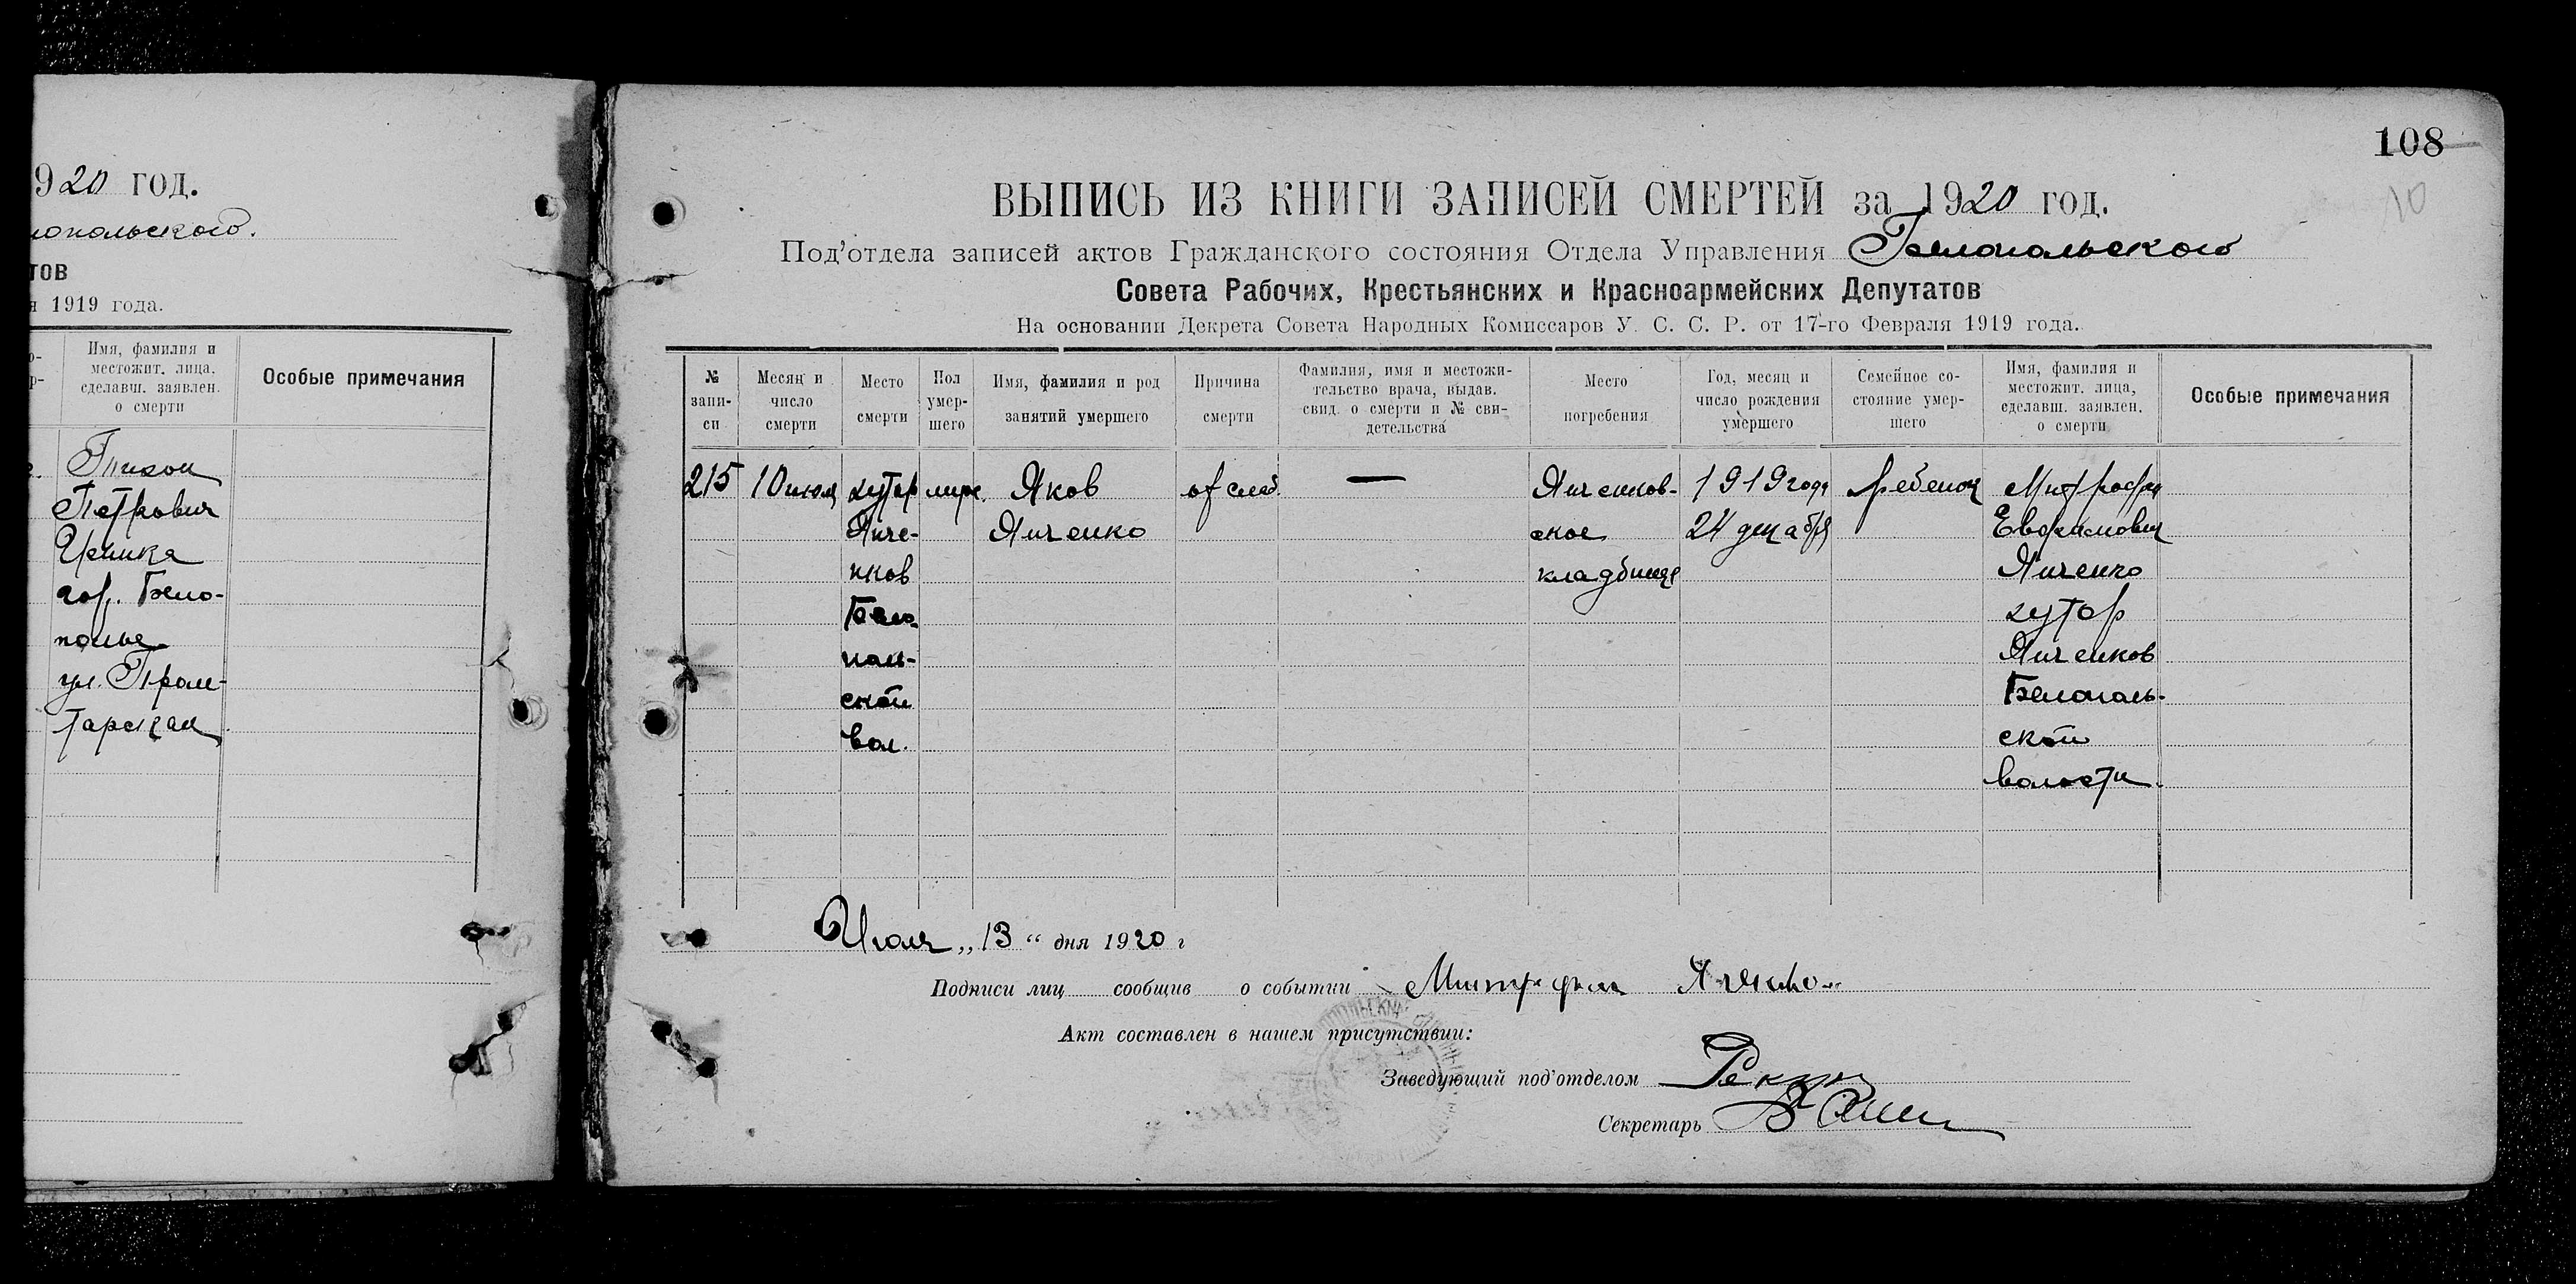 920 год.
нопольского.
тов
я 1919 года.
Имя, фамилия и
местожит. лица,
сделавш. заявлен.
о смерти
Особые примечания
Тихон
Петрович
гор. Бело-
полье
ул.
108
10
ВЫПИСЬ ИЗ КНИГИ ЗАПИСЕЙ СМЕРТЕЙ за 1920 год.
Под'отдела записей актов Гражданского состояния Отдела Управления Белопольского
Совета Рабочих, Крестьянских и Красноармейских Депутатов
На основании Декрета Совета Народных Комиссаров У. С. С. Р. от 17-го Февраля 1919 года.
№
запи-
си
Месяц и
число
смерти
Место
смерти
Пол
умер-
шего
Имя, фамилия и род
занятий умершего
Причина
смерти
Фамилия, имя и местожи-
тельство врача, выдав.
свид. о смерти и № сви-
детельства
Место
погребения
Год, месяц и
число рождения
умершего
Семейное со-
стояние умер-
шего
Имя, фамилия и
местожит. лица,
сделавш. заявлен.
о смерти
Особые примечания
215
10 июля
хутор
Янче-
нков
Бело-
поль-
ской
вол.
муж.
Яков
Янченко
от слаб.
—
Янченков-
ское
кладбище
1919 года
24 декабря
ребенок
Митрофан
Янченко
хутор
Янченков
Белополь-
ской
волости.
Июля „13“ дня 1920 г
Подписи лиц сообщив о событии Митрофан
Акт составлен в нашем присутствии:
Заведующий под'отделом
Секретарь